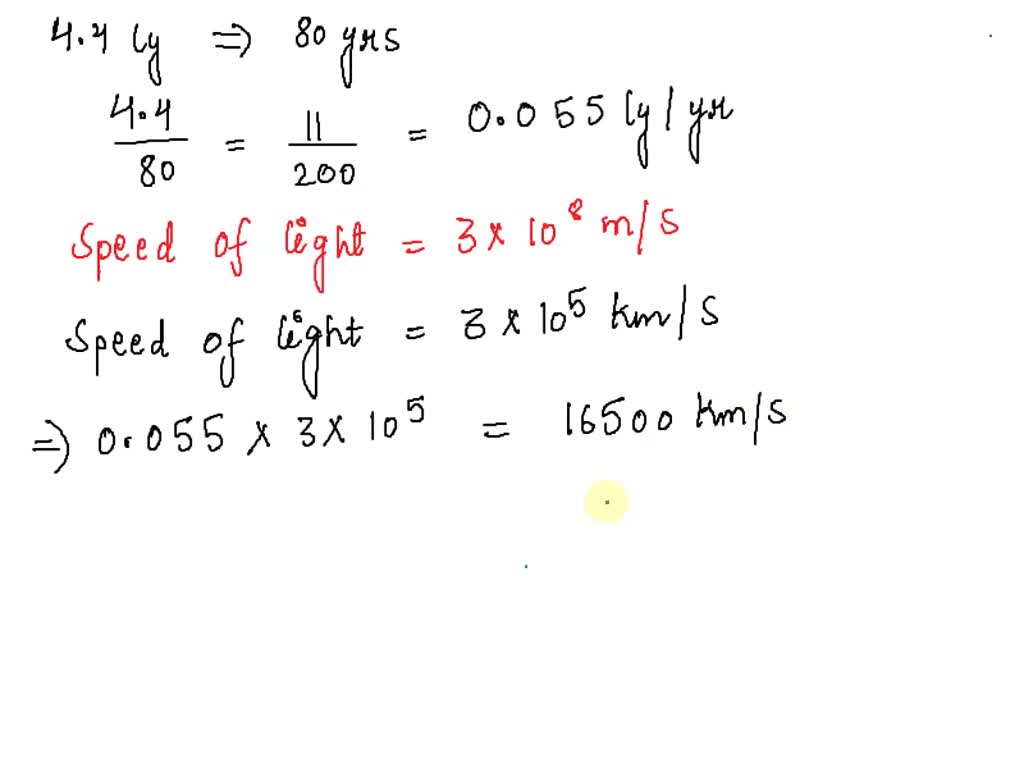 4.4 ly ⇒ 80 yrs
4.4/80 = 11/200 = 0.055 ly/yr
Speed of light = 3 × 10⁸ m/s
Speed of light = 3 × 10⁵ km/s
⇒ 0.055 × 3 × 10⁵ = 16500 km/s